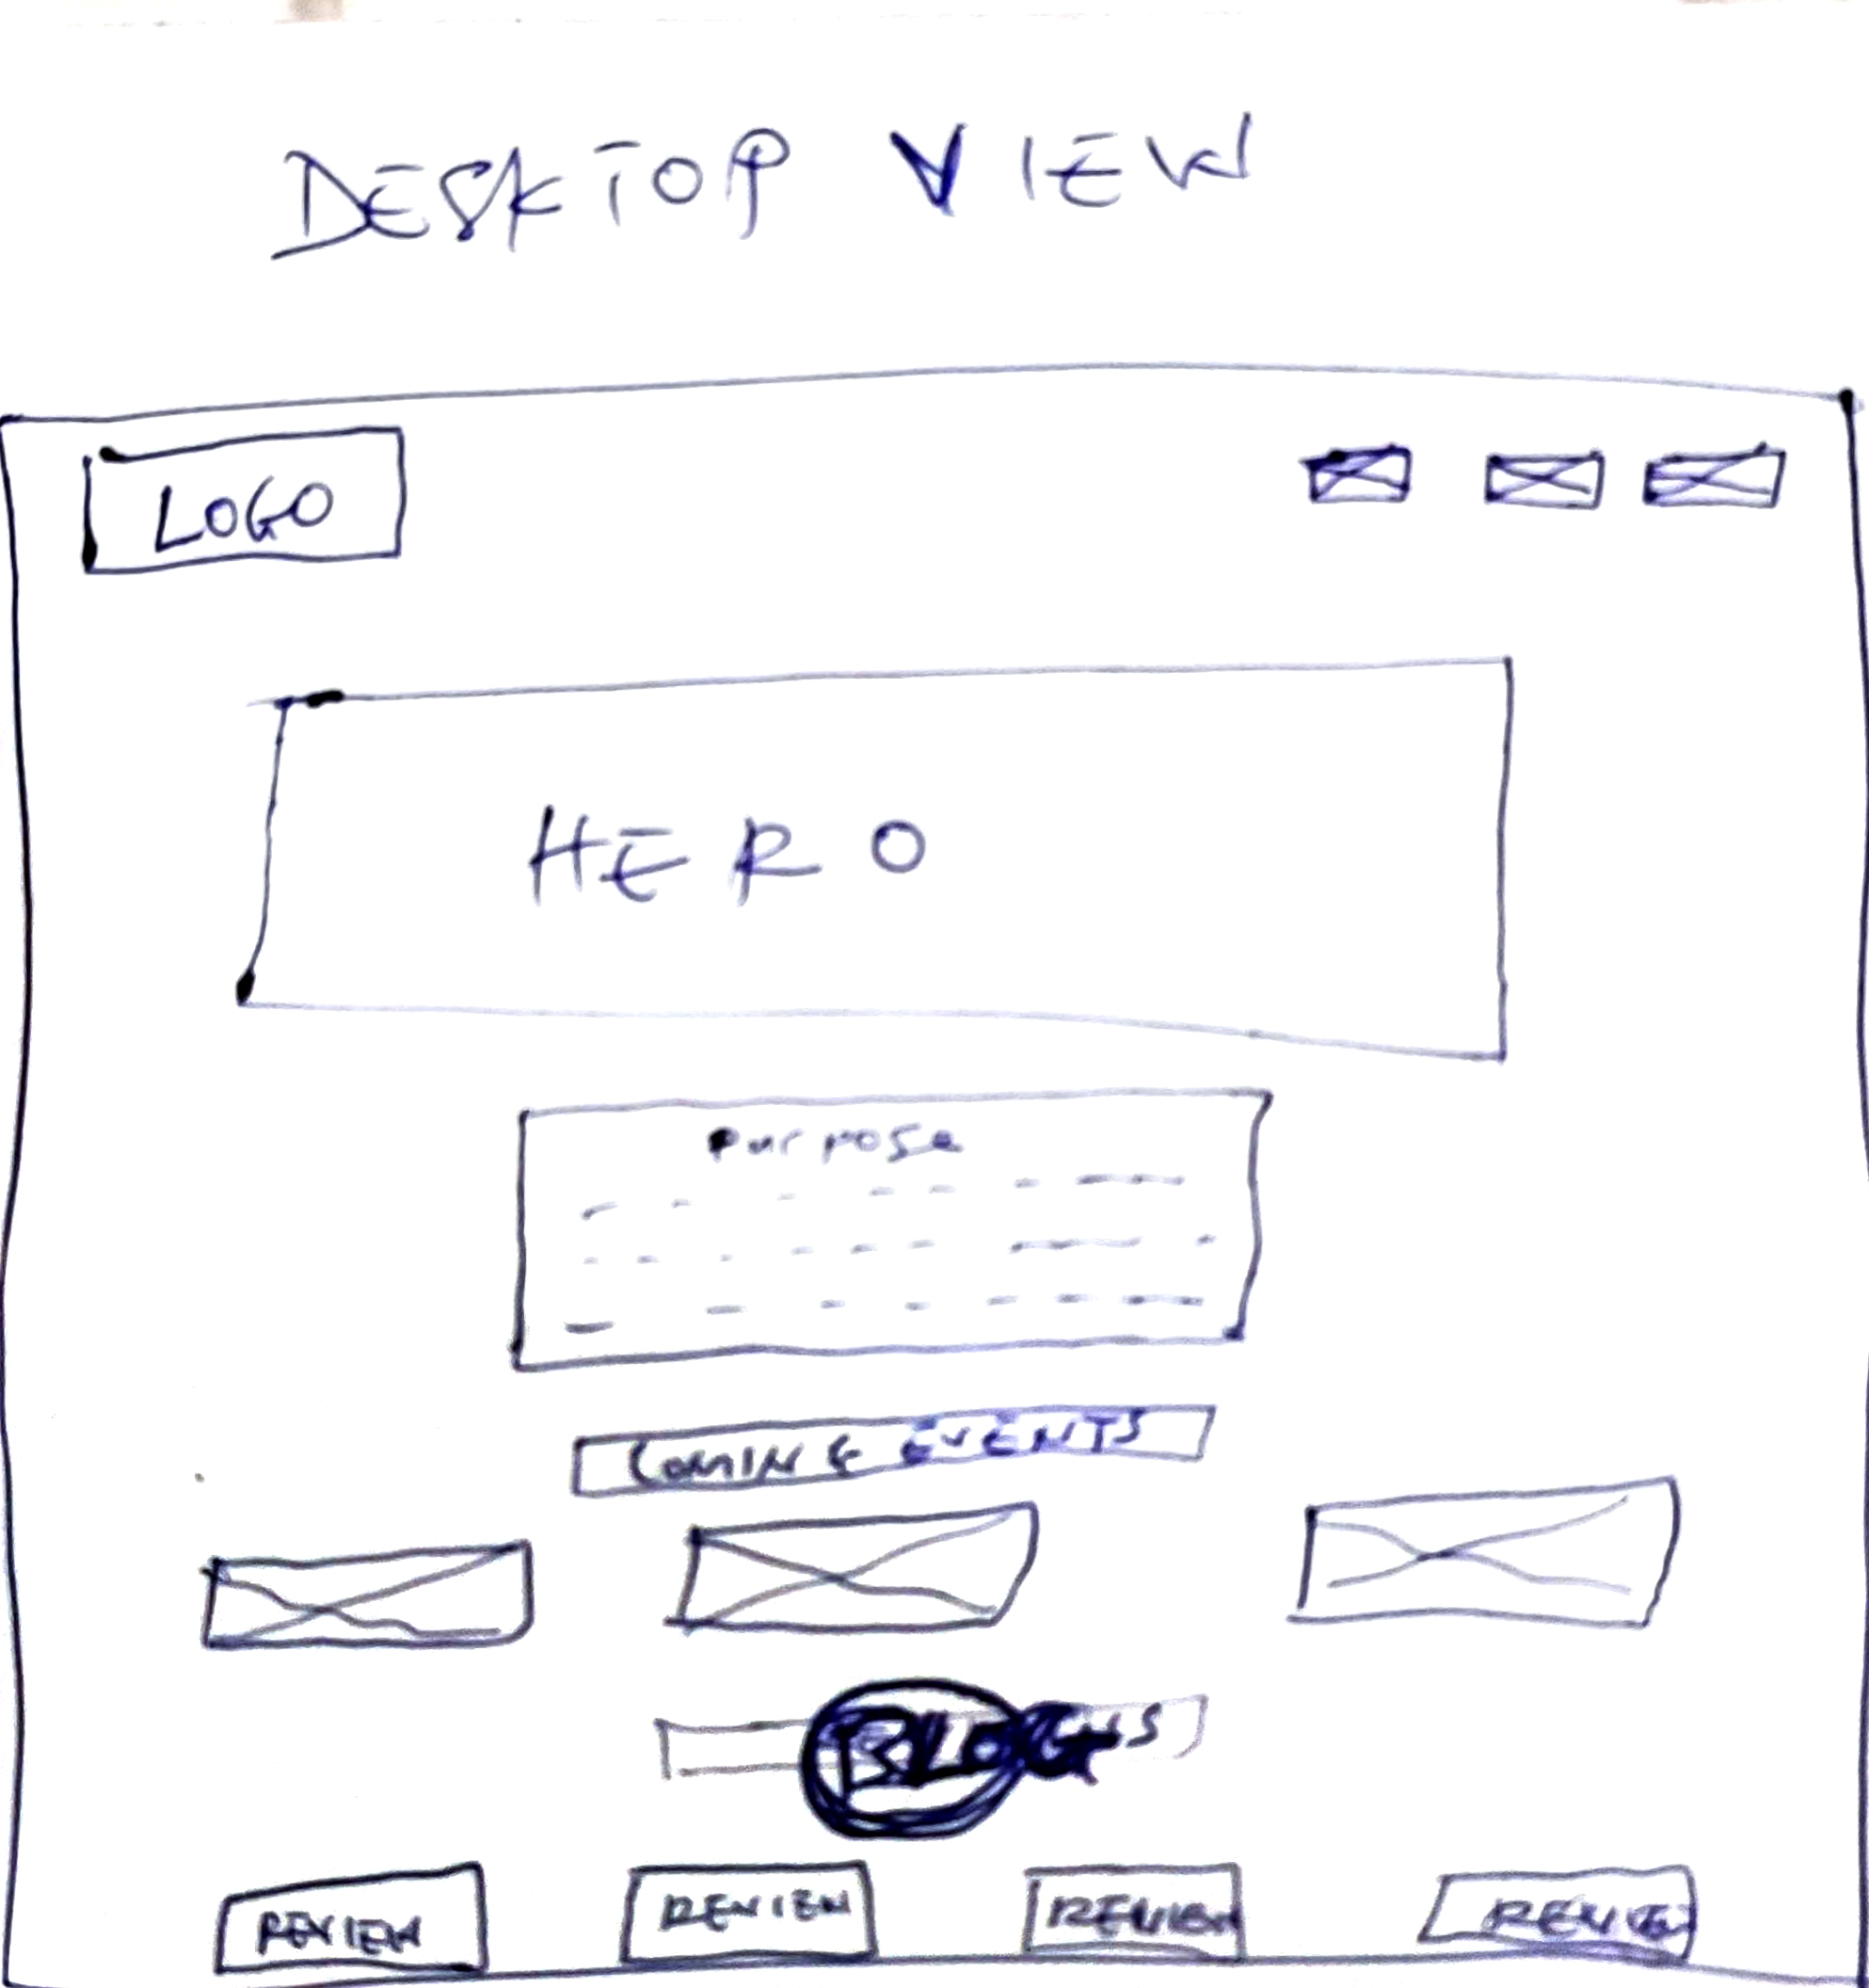 DESKTOP VIEW
LOGO
HERO
Purpose
COMING EVENTS
BLOGS
REVIEW REVIEW REVIEW REVIEW